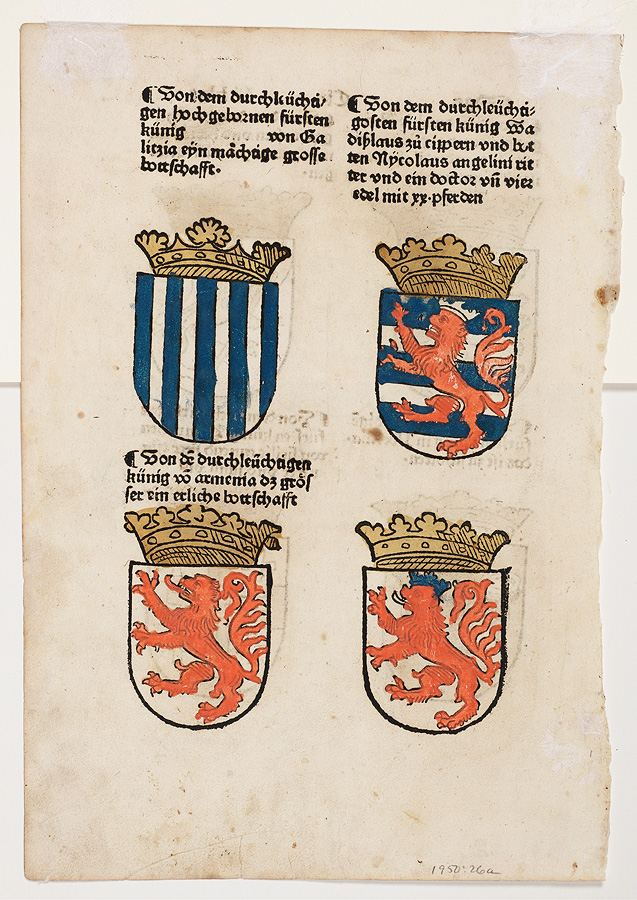 ¶ Von dem durchleüchti-
gen hochgebornen fürsten
künig von Ga
litzia eyn mächtige grosse
bottschafft.
¶ Von dem durchleüchti-
gosten fürsten künig Wa
dißlaus zů cippern vnd bot
ten Nycolaus angelini rit
ter vnd ein doctor vñ vier
edel mit xx. pferden
¶ Von dē durchleüchtigen
künig vō armenia dz grös
ser ein erliche bottschafft
1950:26a